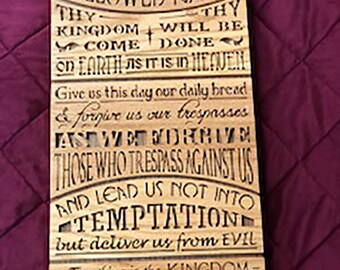 THY THY
KINGDOM WILL BE
COME DONE
on EARTH AS IT IS IN HEAVEN
Give us this day our daily bread
& forgive us our trespasses
AS WE FORGIVE
THOSE WHO TRESPASS AGAINST US
AND LEAD US NOT INTO
TEMPTATION
but deliver us from EVIL
is the KINGDOM